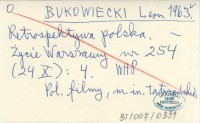 O BUKOWIECKI Leon 1963 r.
Retrospektywa polska. –
Życie Warszawy nr 254
(24 X) : 4. WHP
Pol. filmy, m.in. tatrzańskie
51/007/0339